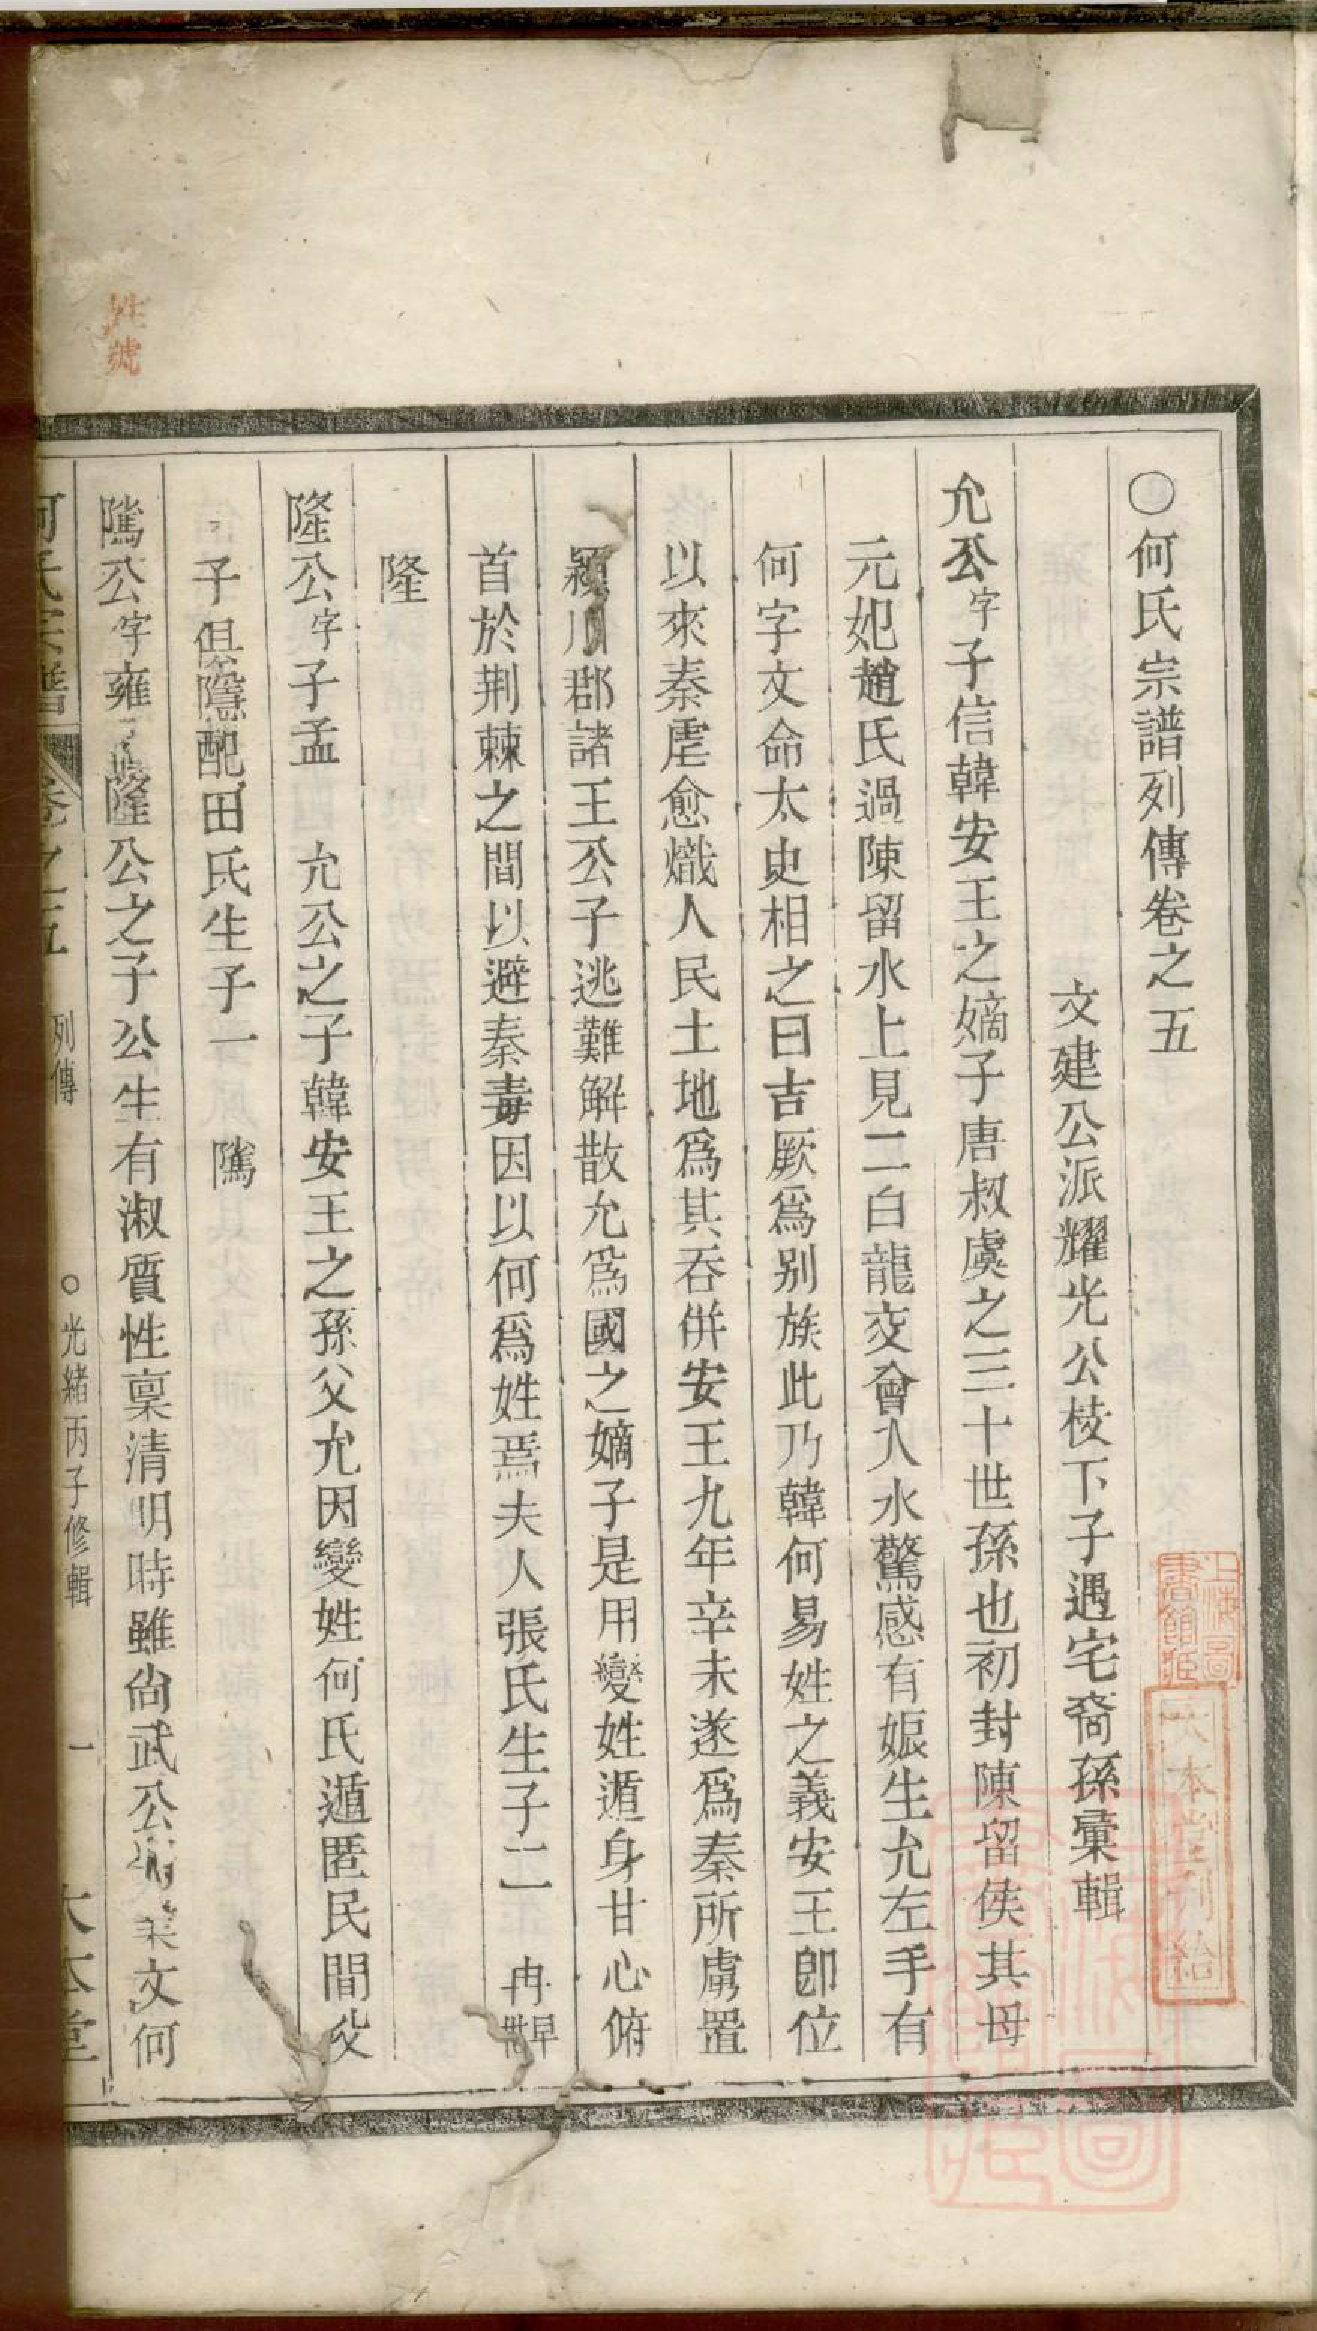 ○何氏宗譜列傳卷之五
文建公派耀光公枝下子遇宅裔孫彙輯
允公字子信韓安王之嫡子唐叔虞之三十世孫也初封陳留侯其母
元妃趙氏過陳留水上見二白龍交會入水驚感有娠生允左手有
何字文命太史相之曰吉厥爲别族此乃韓何易姓之義安王卽位
以來秦虐愈熾人民土地爲其吞併安王九年辛未遂爲秦所虜置
潁川郡諸王公子逃難解散允爲國之嫡子是用變姓遁身甘心俯
首於荆棘之間以避秦毒因以何爲姓焉夫人張氏生子二 冉早世
隆
隆公字子孟 允公之子韓安王之孫父允因變姓何氏遁匿民間父
子俱隱配田氏生子一 騰
騰公字雍 隆公之子公生有淑質性稟清明時雖尚武公 業文何
何氏宗譜 卷之五 列傳 ○光緒丙子修輯 一 大本堂
姓號
上海圖書館藏
大本堂刊給